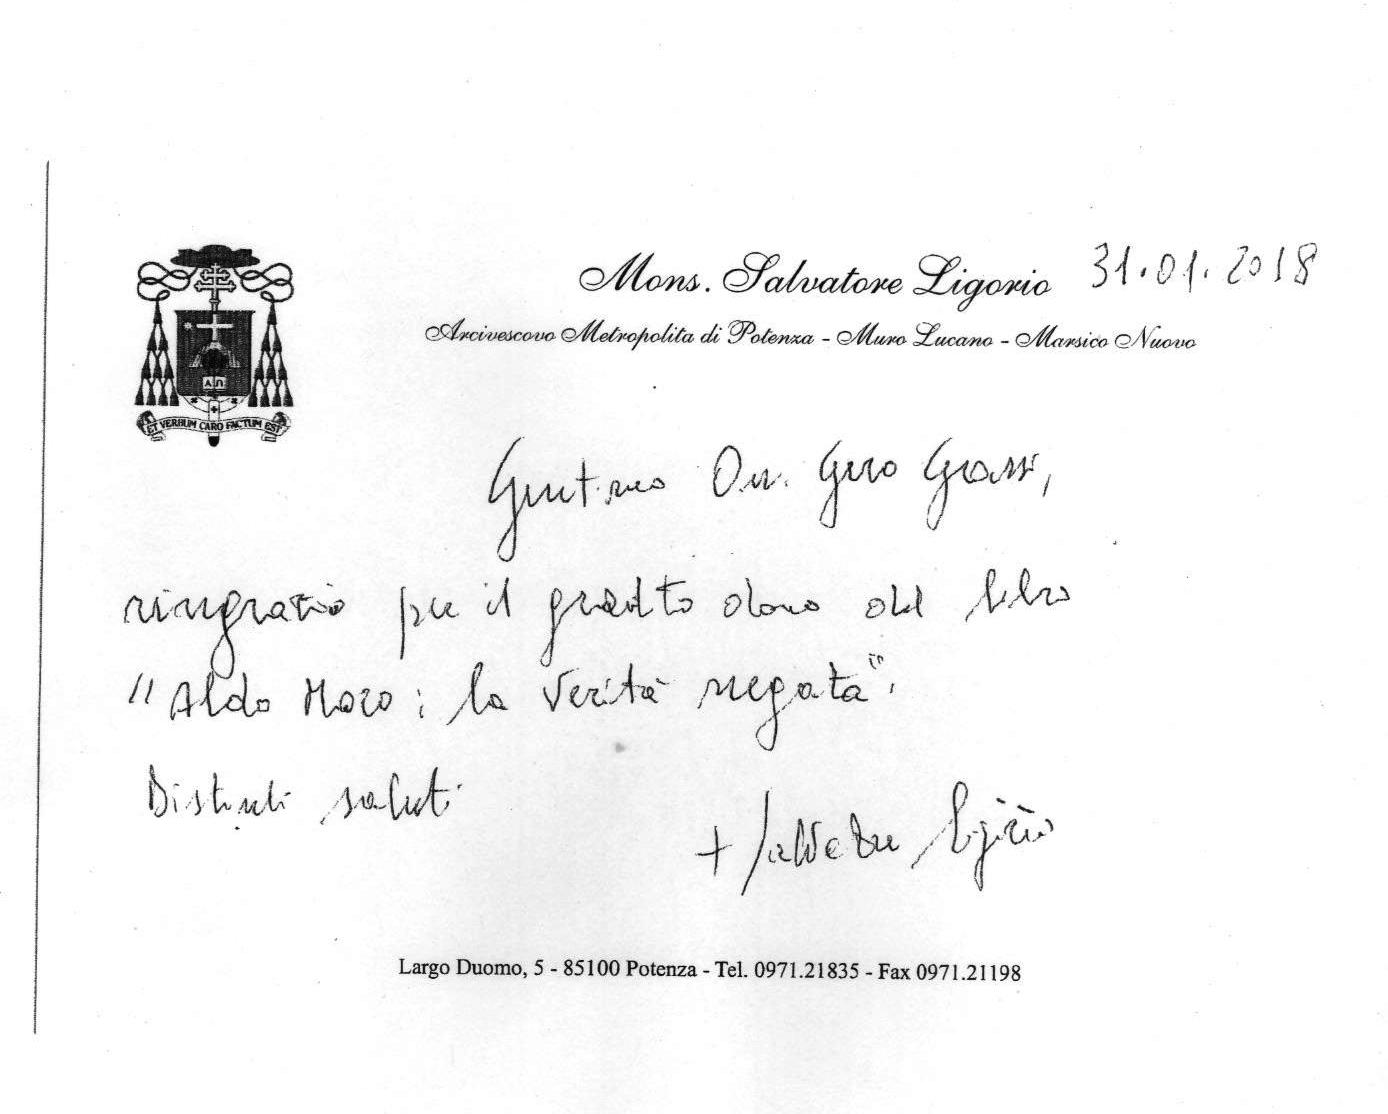 Mons. Salvatore Ligorio 31.01.2018
Arcivescovo Metropolita di Potenza - Muro Lucano - Marsico Nuovo
ET VERBUM CARO FACTUM EST
Gent.mo On. Gero Grassi,
ringrazio per il gradito dono del libro
"Aldo Moro: la verità negata".
Distinti saluti
+ Salvatore Ligorio
Largo Duomo, 5 - 85100 Potenza - Tel. 0971.21835 - Fax 0971.21198